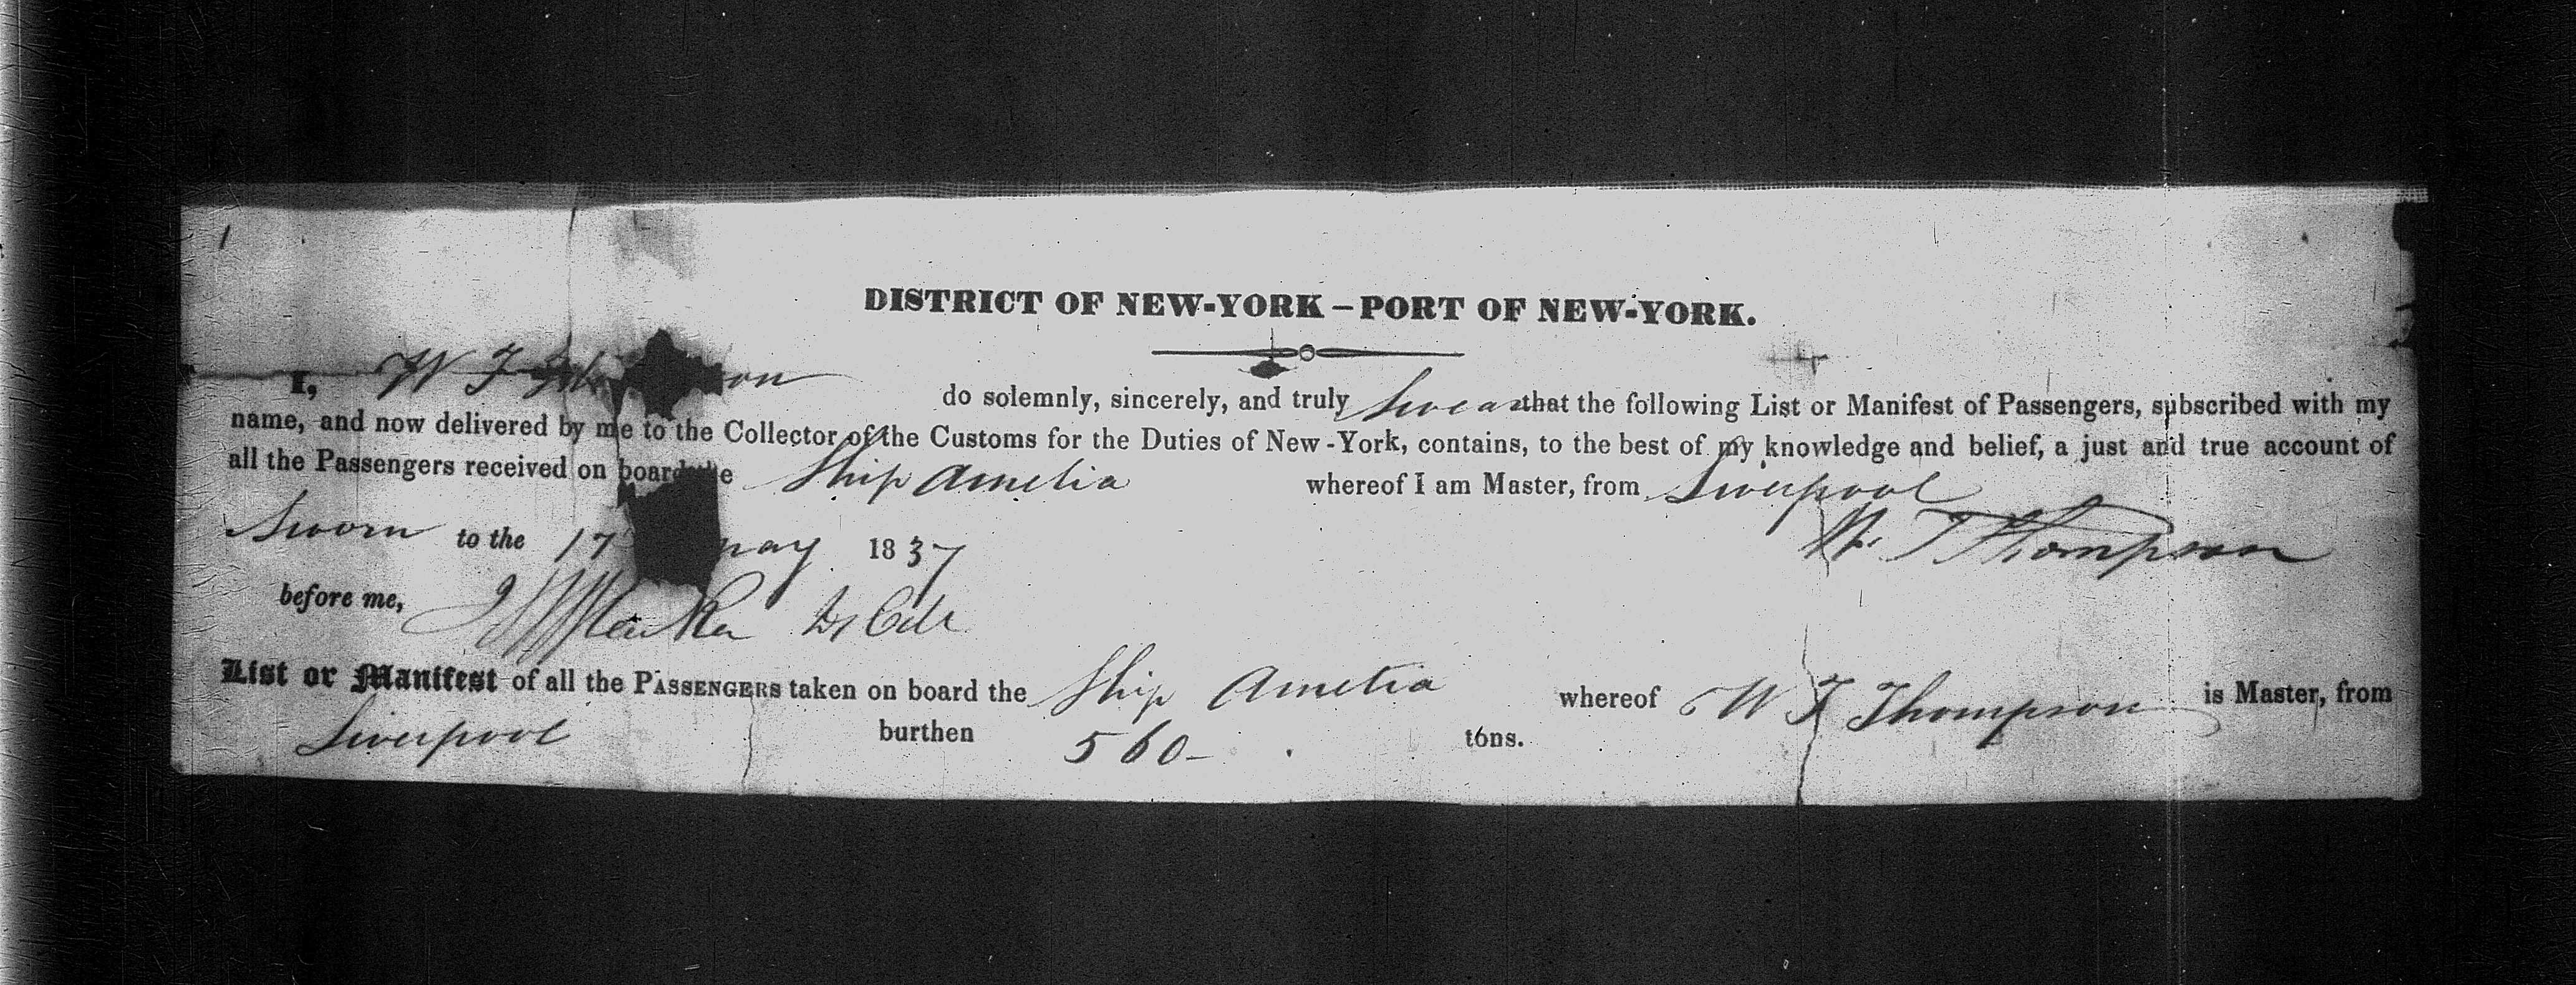 DISTRICT OF NEW-YORK – PORT OF NEW-YORK.
I, W T on do solemnly, sincerely, and truly Swear that the following List or Manifest of Passengers, subscribed with my
name, and now delivered by me to the Collector of the Customs for the Duties of New-York, contains, to the best of my knowledge and belief, a just and true account of
all the Passengers received on board the Ship Amelia whereof I am Master, from Liverpool
Sworn to the 17 may 1837 W. T Thompson
before me,
List or Manifest of all the PASSENGERS taken on board the Ship Amelia whereof W T Thompson is Master, from
Liverpool burthen 560 – tons.